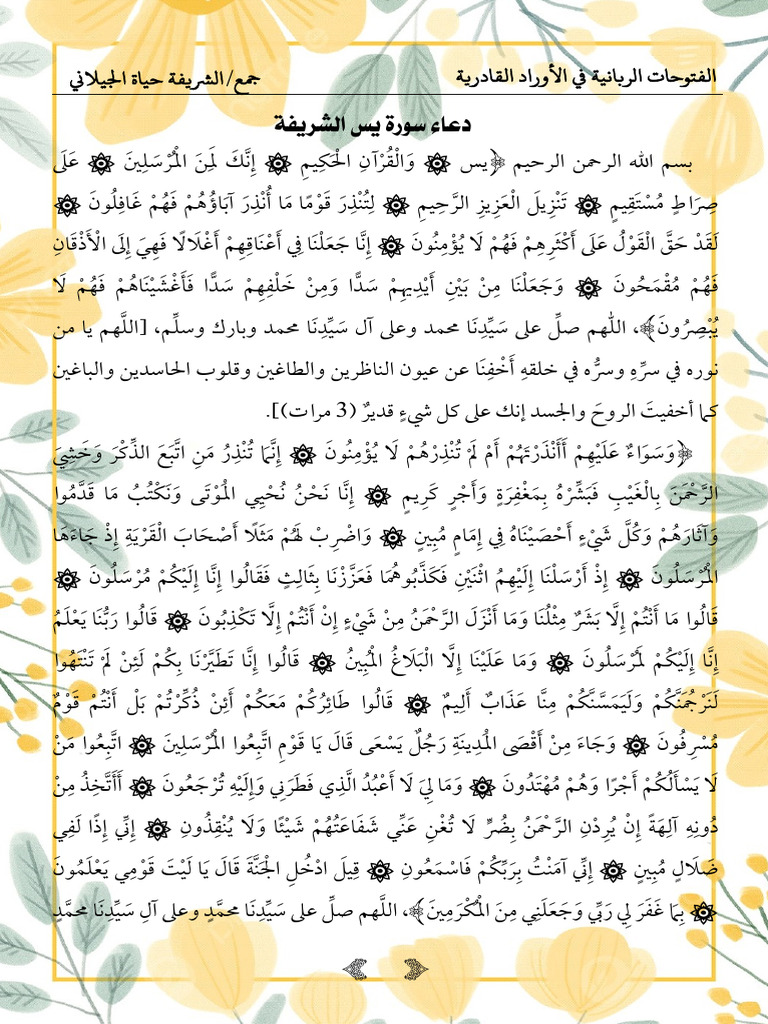 الفتوحات الربانية في الأوراد القادرية
جمع/الشريفة حياة الجيلاني
دعاء سورة يس الشريفة
بسم الله الرحمن الرحيم ﴿يس ۞ وَالْقُرْآنِ الْحَكِيمِ ۞ إِنَّكَ لَمِنَ الْمُرْسَلِينَ ۞ عَلَى
صِرَاطٍ مُسْتَقِيمٍ ۞ تَنْزِيلَ الْعَزِيزِ الرَّحِيمِ ۞ لِتُنْذِرَ قَوْمًا مَا أُنْذِرَ آبَاؤُهُمْ فَهُمْ غَافِلُونَ ۞
لَقَدْ حَقَّ الْقَوْلُ عَلَى أَكْثَرِهِمْ فَهُمْ لَا يُؤْمِنُونَ ۞ إِنَّا جَعَلْنَا فِي أَعْنَاقِهِمْ أَغْلَالًا فَهِيَ إِلَى الْأَذْقَانِ
فَهُمْ مُقْمَحُونَ ۞ وَجَعَلْنَا مِنْ بَيْنِ أَيْدِيهِمْ سَدًّا وَمِنْ خَلْفِهِمْ سَدًّا فَأَغْشَيْنَاهُمْ فَهُمْ لَا
يُبْصِرُونَ﴾، اللهم صلِّ على سَيِّدِنَا محمد وعلى آل سَيِّدِنَا محمد وبارك وسلِّم، [اللَّهم يا من
نوره في سرِّهِ وسرُّه في خلقهِ أَخْفِنَا عن عيون الناظرين والطاغين وقلوب الحاسدين والباغين
كما أخفيتَ الروحَ والجسد إنك على كل شيءٍ قديرٌ (3 مرات)].
﴿وَسَوَاءٌ عَلَيْهِمْ أَأَنْذَرْتَهُمْ أَمْ لَمْ تُنْذِرْهُمْ لَا يُؤْمِنُونَ ۞ إِنَّمَا تُنْذِرُ مَنِ اتَّبَعَ الذِّكْرَ وَخَشِيَ
الرَّحْمَنَ بِالْغَيْبِ فَبَشِّرْهُ بِمَغْفِرَةٍ وَأَجْرٍ كَرِيمٍ ۞ إِنَّا نَحْنُ نُحْيِي الْمَوْتَى وَنَكْتُبُ مَا قَدَّمُوا
وَآثَارَهُمْ وَكُلَّ شَيْءٍ أَحْصَيْنَاهُ فِي إِمَامٍ مُبِينٍ ۞ وَاضْرِبْ لَهُمْ مَثَلًا أَصْحَابَ الْقَرْيَةِ إِذْ جَاءَهَا
الْمُرْسَلُونَ ۞ إِذْ أَرْسَلْنَا إِلَيْهِمُ اثْنَيْنِ فَكَذَّبُوهُمَا فَعَزَّزْنَا بِثَالِثٍ فَقَالُوا إِنَّا إِلَيْكُمْ مُرْسَلُونَ ۞
قَالُوا مَا أَنْتُمْ إِلَّا بَشَرٌ مِثْلُنَا وَمَا أَنْزَلَ الرَّحْمَنُ مِنْ شَيْءٍ إِنْ أَنْتُمْ إِلَّا تَكْذِبُونَ ۞ قَالُوا رَبُّنَا يَعْلَمُ
إِنَّا إِلَيْكُمْ لَمُرْسَلُونَ ۞ وَمَا عَلَيْنَا إِلَّا الْبَلَاغُ الْمُبِينُ ۞ قَالُوا إِنَّا تَطَيَّرْنَا بِكُمْ لَئِنْ لَمْ تَنْتَهُوا
لَنَرْجُمَنَّكُمْ وَلَيَمَسَّنَّكُمْ مِنَّا عَذَابٌ أَلِيمٌ ۞ قَالُوا طَائِرُكُمْ مَعَكُمْ أَئِنْ ذُكِّرْتُمْ بَلْ أَنْتُمْ قَوْمٌ
مُسْرِفُونَ ۞ وَجَاءَ مِنْ أَقْصَى الْمَدِينَةِ رَجُلٌ يَسْعَى قَالَ يَا قَوْمِ اتَّبِعُوا الْمُرْسَلِينَ ۞ اتَّبِعُوا مَنْ
لَا يَسْأَلُكُمْ أَجْرًا وَهُمْ مُهْتَدُونَ ۞ وَمَا لِيَ لَا أَعْبُدُ الَّذِي فَطَرَنِي وَإِلَيْهِ تُرْجَعُونَ ۞ أَأَتَّخِذُ مِنْ
دُونِهِ آلِهَةً إِنْ يُرِدْنِ الرَّحْمَنُ بِضُرٍّ لَا تُغْنِ عَنِّي شَفَاعَتُهُمْ شَيْئًا وَلَا يُنْقِذُونِ ۞ إِنِّي إِذًا لَفِي
ضَلَالٍ مُبِينٍ ۞ إِنِّي آمَنْتُ بِرَبِّكُمْ فَاسْمَعُونِ ۞ قِيلَ ادْخُلِ الْجَنَّةَ قَالَ يَا لَيْتَ قَوْمِي يَعْلَمُونَ
۞ بِمَا غَفَرَ لِي رَبِّي وَجَعَلَنِي مِنَ الْمُكْرَمِينَ﴾، اللَّهم صلِّ على سَيِّدِنَا محمَّدٍ وعلى آلِ سَيِّدِنَا محمَّدٍ